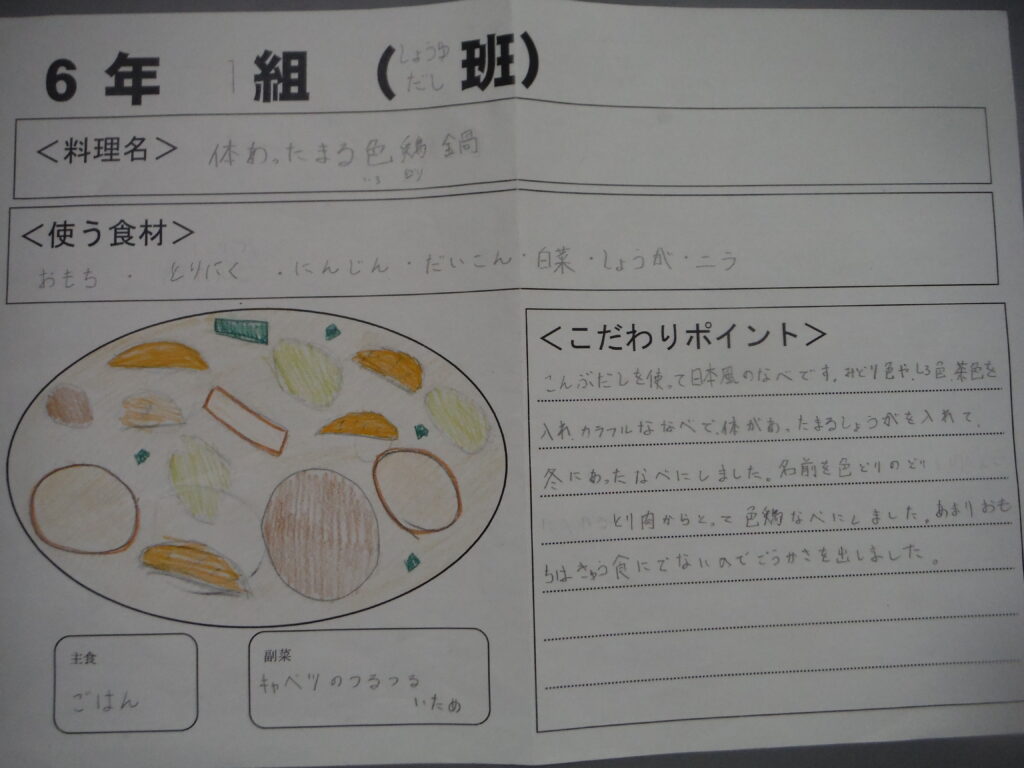 6年 1組 (しょうゆだし 班)
<料理名> 体あったまる色鶏鍋
いろ どり
<使う食材>
おもち・とりにく・にんじん・だいこん・白菜・しょうが・ニラ
<こだわりポイント>
こんぶだしを使って日本風のなべです。みどり色や、しろ色、茶色を
入れ、カラフルななべで、体があったまるしょうがを入れて、
冬にあったなべにしました。名前を色どりのどり
とり肉からとって色鶏なべにしました。あまりおも
ちはきゅう食にでないのでごうかさを出しました。
主食
ごはん
副菜
キャベツのつるつる
いため